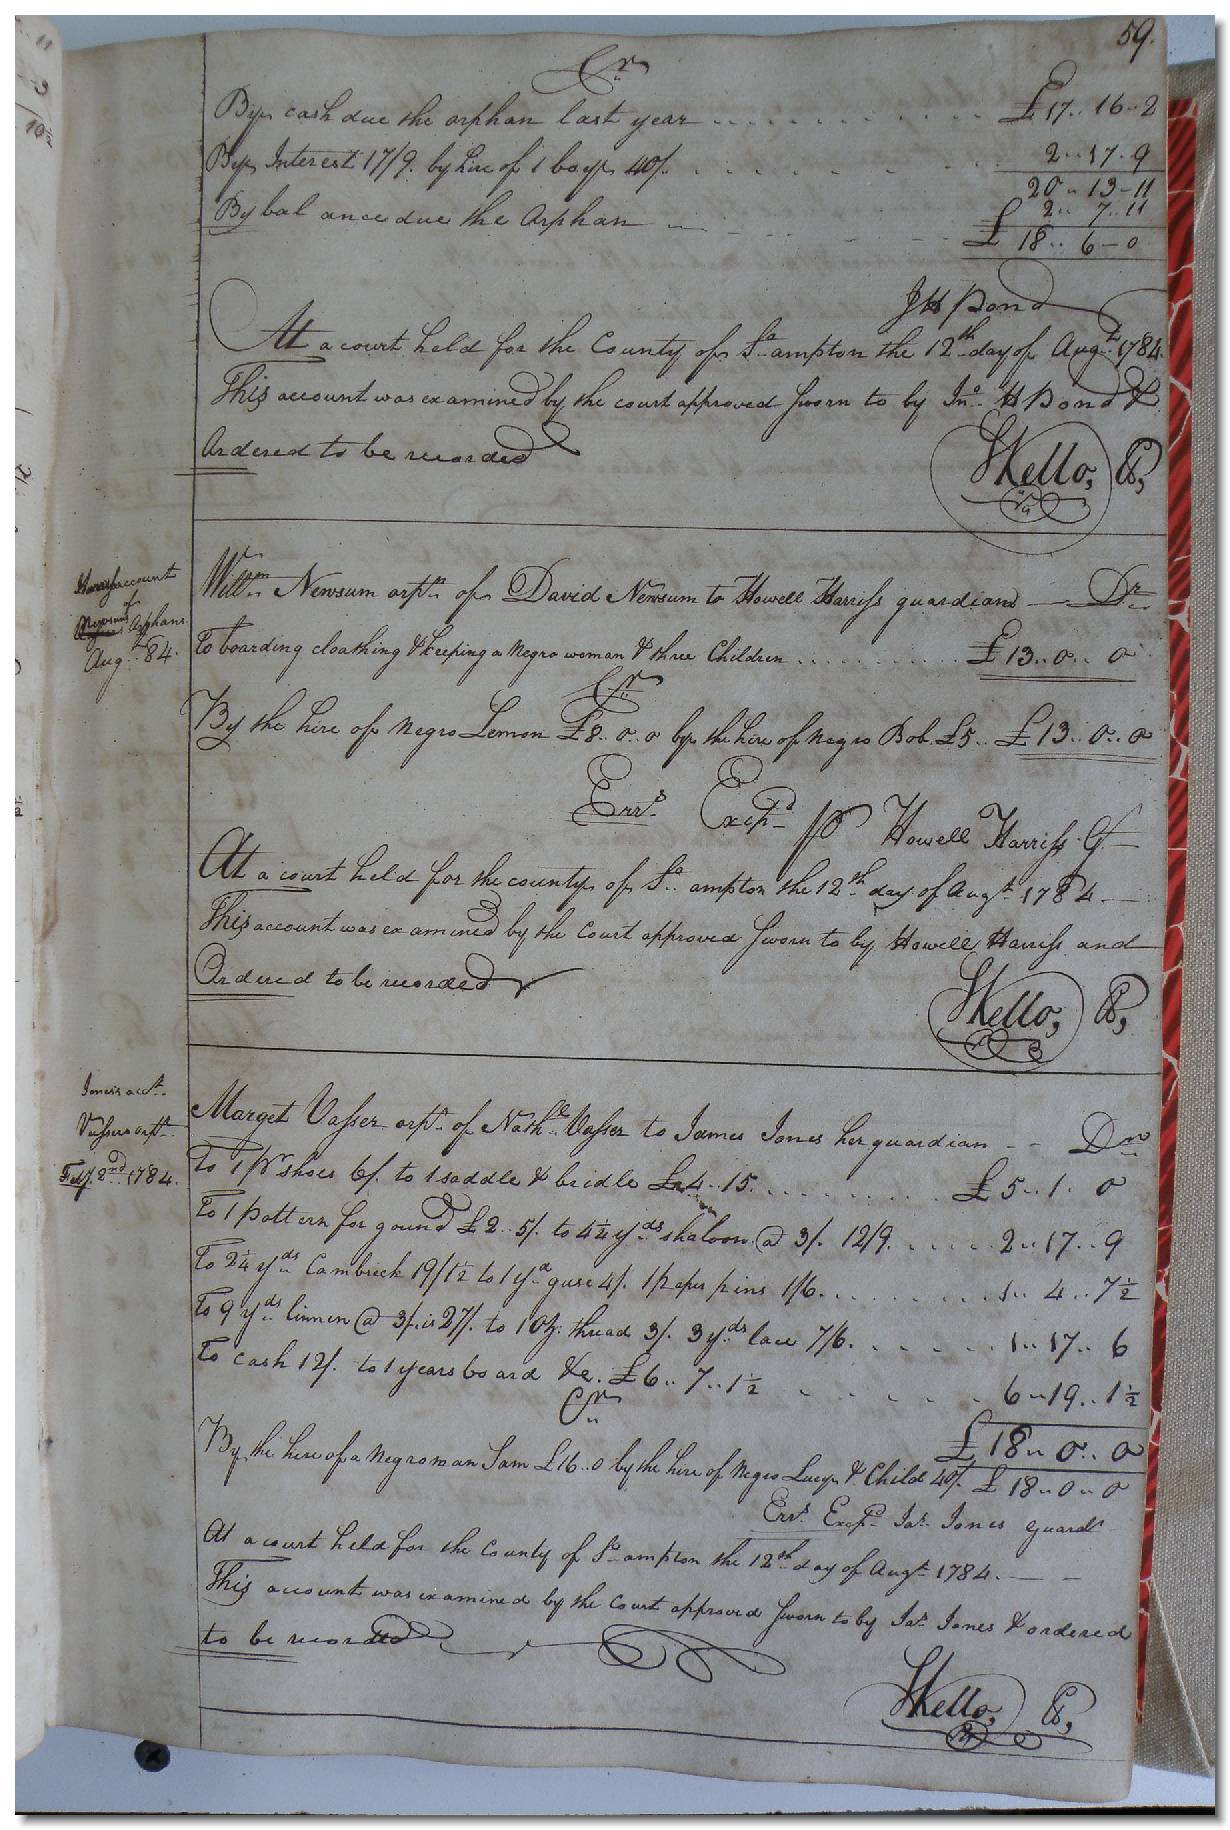 59.
Cr
By cash due the orphan last year £17.. 16-2
By Interest 17/9. by hire of 1 boy 40/. 2..17.9
20..13-11
2.. 7..11
By ballance due the Orphan £ 18.. 6-0
JH Pond
At a court held for the County of So. ampton the 12th day of Augt. 1784.
This account was examined by the court approved sworn to by Jno. H Pond &
Ordered to be recorded
SKello, Ck,
account
of
Newsums Orphans
Augt. 84.
Willm. Newsum orpn. of David Newsum to Howell Harriss guardian — Dr
To boarding cloathing & keeping a Negro woman & three Children £13..0.. 0
Cr
By the hire of Negro Lemon £8..0..0 by the hire of Negro Bob £5.. £13..0..0
Errs. Excepd. pr Howell Harriss. G.
At a court held for the county of So. ampton the 12th. day of Augt. 1784 —
This account was examined by the Court approved sworn to by Howell Harriss and
Ordered to be recorded
SKello, Ck,
Jones's acct.
Vassers orpn.
Feby. 2nd. 1784.
Marget Vasser orpn. of Nathl. Vasser to James Jones her guardian -- Dr
To 1 pr shoes 6/. to 1 saddle & bridle £4..15. £5..1. 0
To 1 Pattern for gound £2..5/. to 4¼ yds. shaloon @ 3/. 12/9. 2..17..9
To 2¼ yds. Cambrick 19/1½ to 1 yd. guse 4/. 1 paper pins 1/6. 1.. 4..7½
To 9 yds. linnen @ 3/. is 27/. to 1 oz. thread 3/. 3 yds lace 7/6. 1..17.. 6
To cash 12/. to 1 years board &c. £6..7..1½ 6..19..1½
Cr
£18..0..0
By the hire of a Negro man Sam £16..0 by the hire of Negro Lucy & Child 40/. £18..0..0
Errs. Excepd. Jas. Jones guardn
At a court held for the County of So. ampton the 12th. day of Augt. 1784. —
This account was examined by the Court approved sworn to by Jas. Jones & ordered
to be recorded
SKello, Ck,